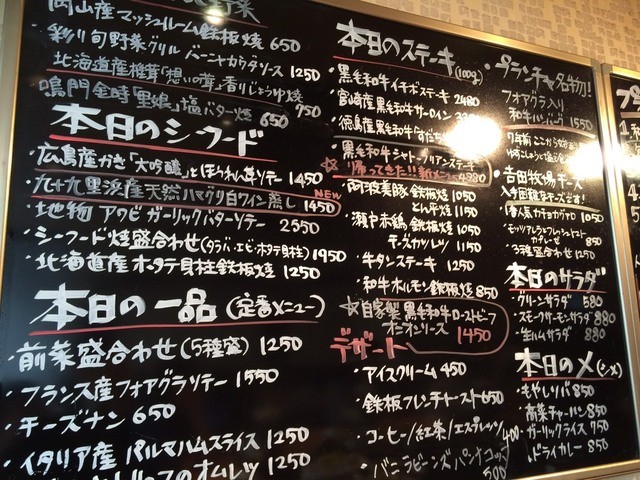 野菜
岡山産マッシュルーム鉄板焼 650
彩り旬野菜グリル バーニャカウダソース 1250
北海道産椎茸「想いの茸」香りじょうゆ焼 750
鳴門金時「里娘」塩バター焼 650
本日のシーフード
広島産かき「大吟醸」とほうれん草ソテー 1450
NEW
九十九里浜産天然ハマグリ白ワイン蒸し 1450
地物 アワビガーリックバターソテー 2550
シーフード焼盛合わせ(タラバ・エビ・ホタテ貝柱) 1950
北海道産ホタテ貝柱鉄板焼 1250
本日の一品 (定番メニュー)
前菜盛合わせ(5種盛) 1250
フランス産フォアグラソテー 1550
チーズナン 650
イタリア産 パルマハムスライス 1250
のオムレツ 1250
本日のステーキ (100g)
黒毛和牛イチボステーキ 2480
宮崎産黒毛和牛サーロイン
徳島産黒毛和牛
黒毛和牛シャトーブリアンステーキ
帰ってきた!!新メニュー 4980
阿波美豚 鉄板焼 1050
とん平焼 1150
瀬戸赤鶏 鉄板焼 1050
チーズカツレツ 1150
牛タンステーキ 1250
和牛ホルモン鉄板焼 850
☆自家製 黒毛和牛ローストビーフ
オニオンソース 1450
デザート
アイスクリーム 450
鉄板フレンチトースト 650
コーヒー/紅茶/エスプレッソ 400
バニラビーンズパンナコッタ 500
ブランチャ名物!
フォアグラ入り
和牛ハンバーグ 1550
吉田牧場チーズ
入手困難なチーズです!
1番人気カチョカヴァロ 1050
モッツァレラとフレッシュトマト
カプレーゼ 850
3種盛合せ 1250
本日のサラダ
グリーンサラダ 580
スモークサーモンサラダ 880
生ハムサラダ 880
本日の〆(シメ)
もやしソバ 850
高菜チャーハン 850
ガーリックライス 750
ドライカレー 850